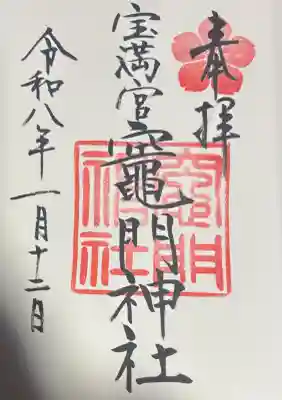 奉拝
宝満宮竈門神社
竈門神社
令和八年一月十二日